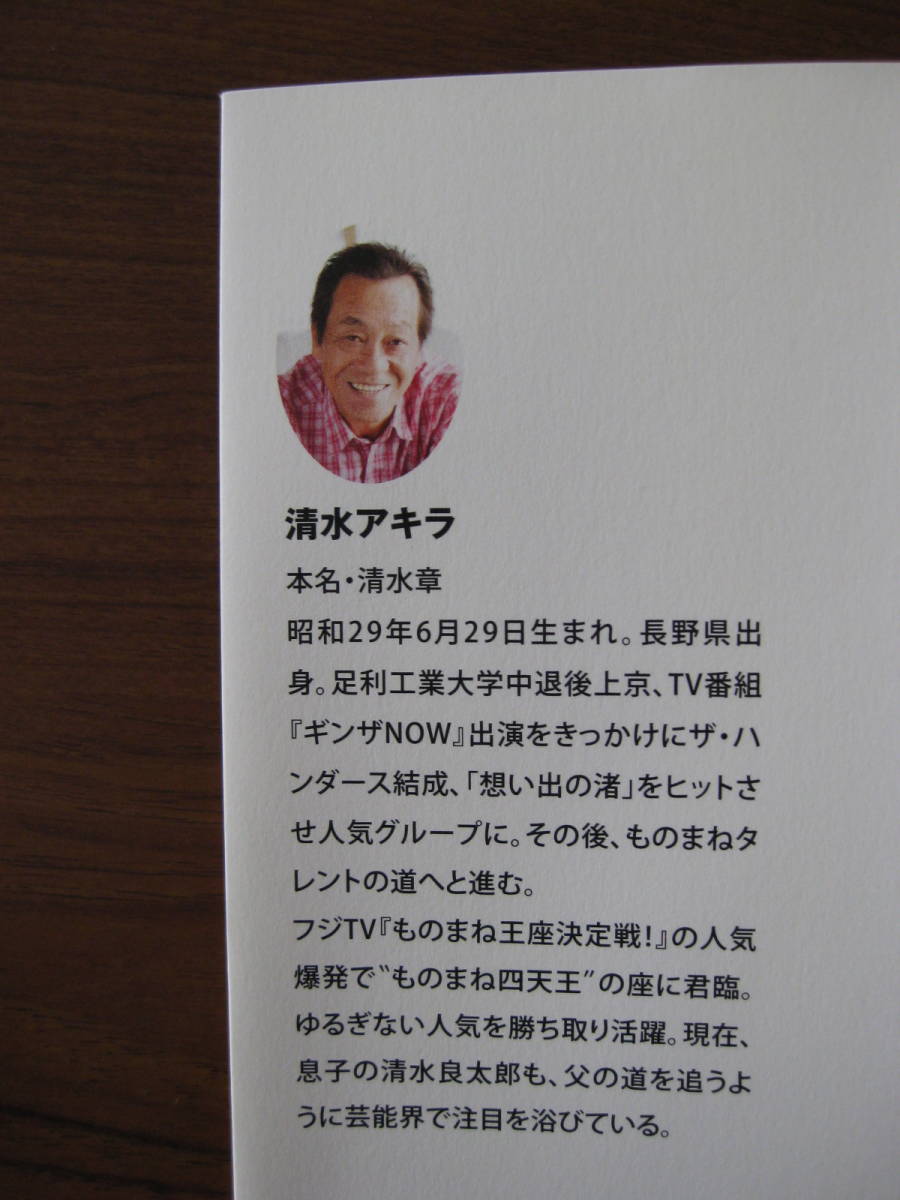 清水アキラ
本名・清水章
昭和29年6月29日生まれ。長野県出
身。足利工業大学中退後上京、TV番組
『ギンザNOW』出演をきっかけにザ・ハ
ンダース結成、「想い出の渚」をヒットさ
せ人気グループに。その後、ものまねタ
レントの道へと進む。
フジTV『ものまね王座決定戦!』の人気
爆発で〝ものまね四天王〟の座に君臨。
ゆるぎない人気を勝ち取り活躍。現在、
息子の清水良太郎も、父の道を追うよ
うに芸能界で注目を浴びている。